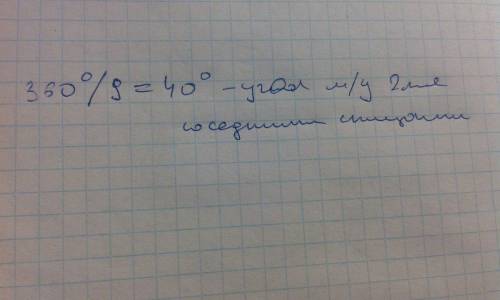 360°/9 = 40° - угол м/у 2мя
соседними спицами